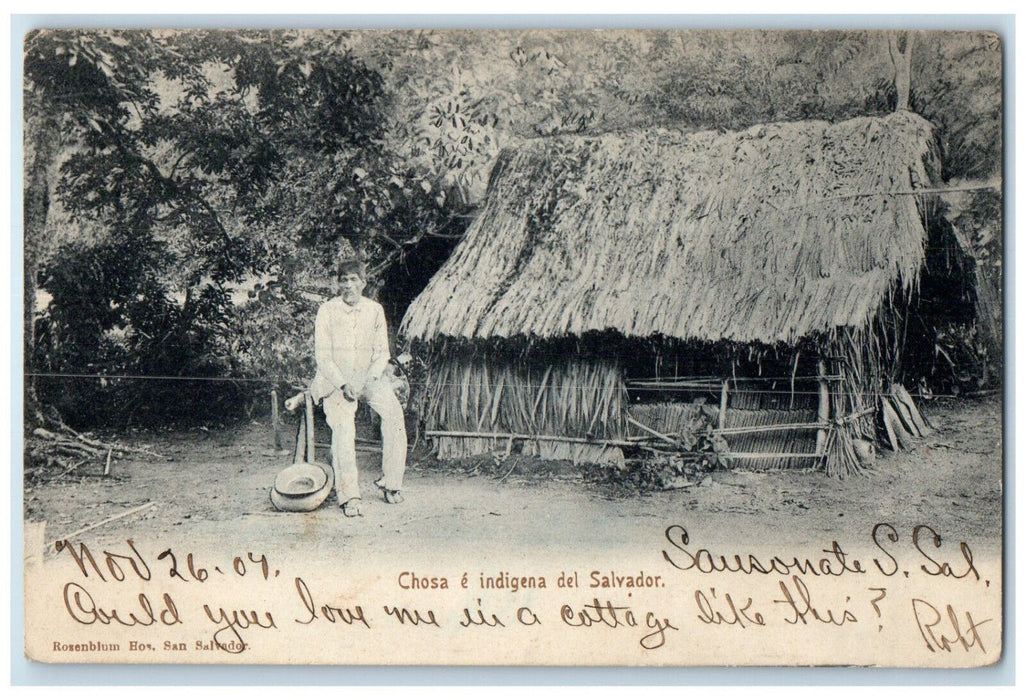 Nov 26-07. Sausonate S. Sal,
Chosa é indigena del Salvador.
Could you love me in a cottage like this? Robt
Rosenblum Hos, San Salvador.